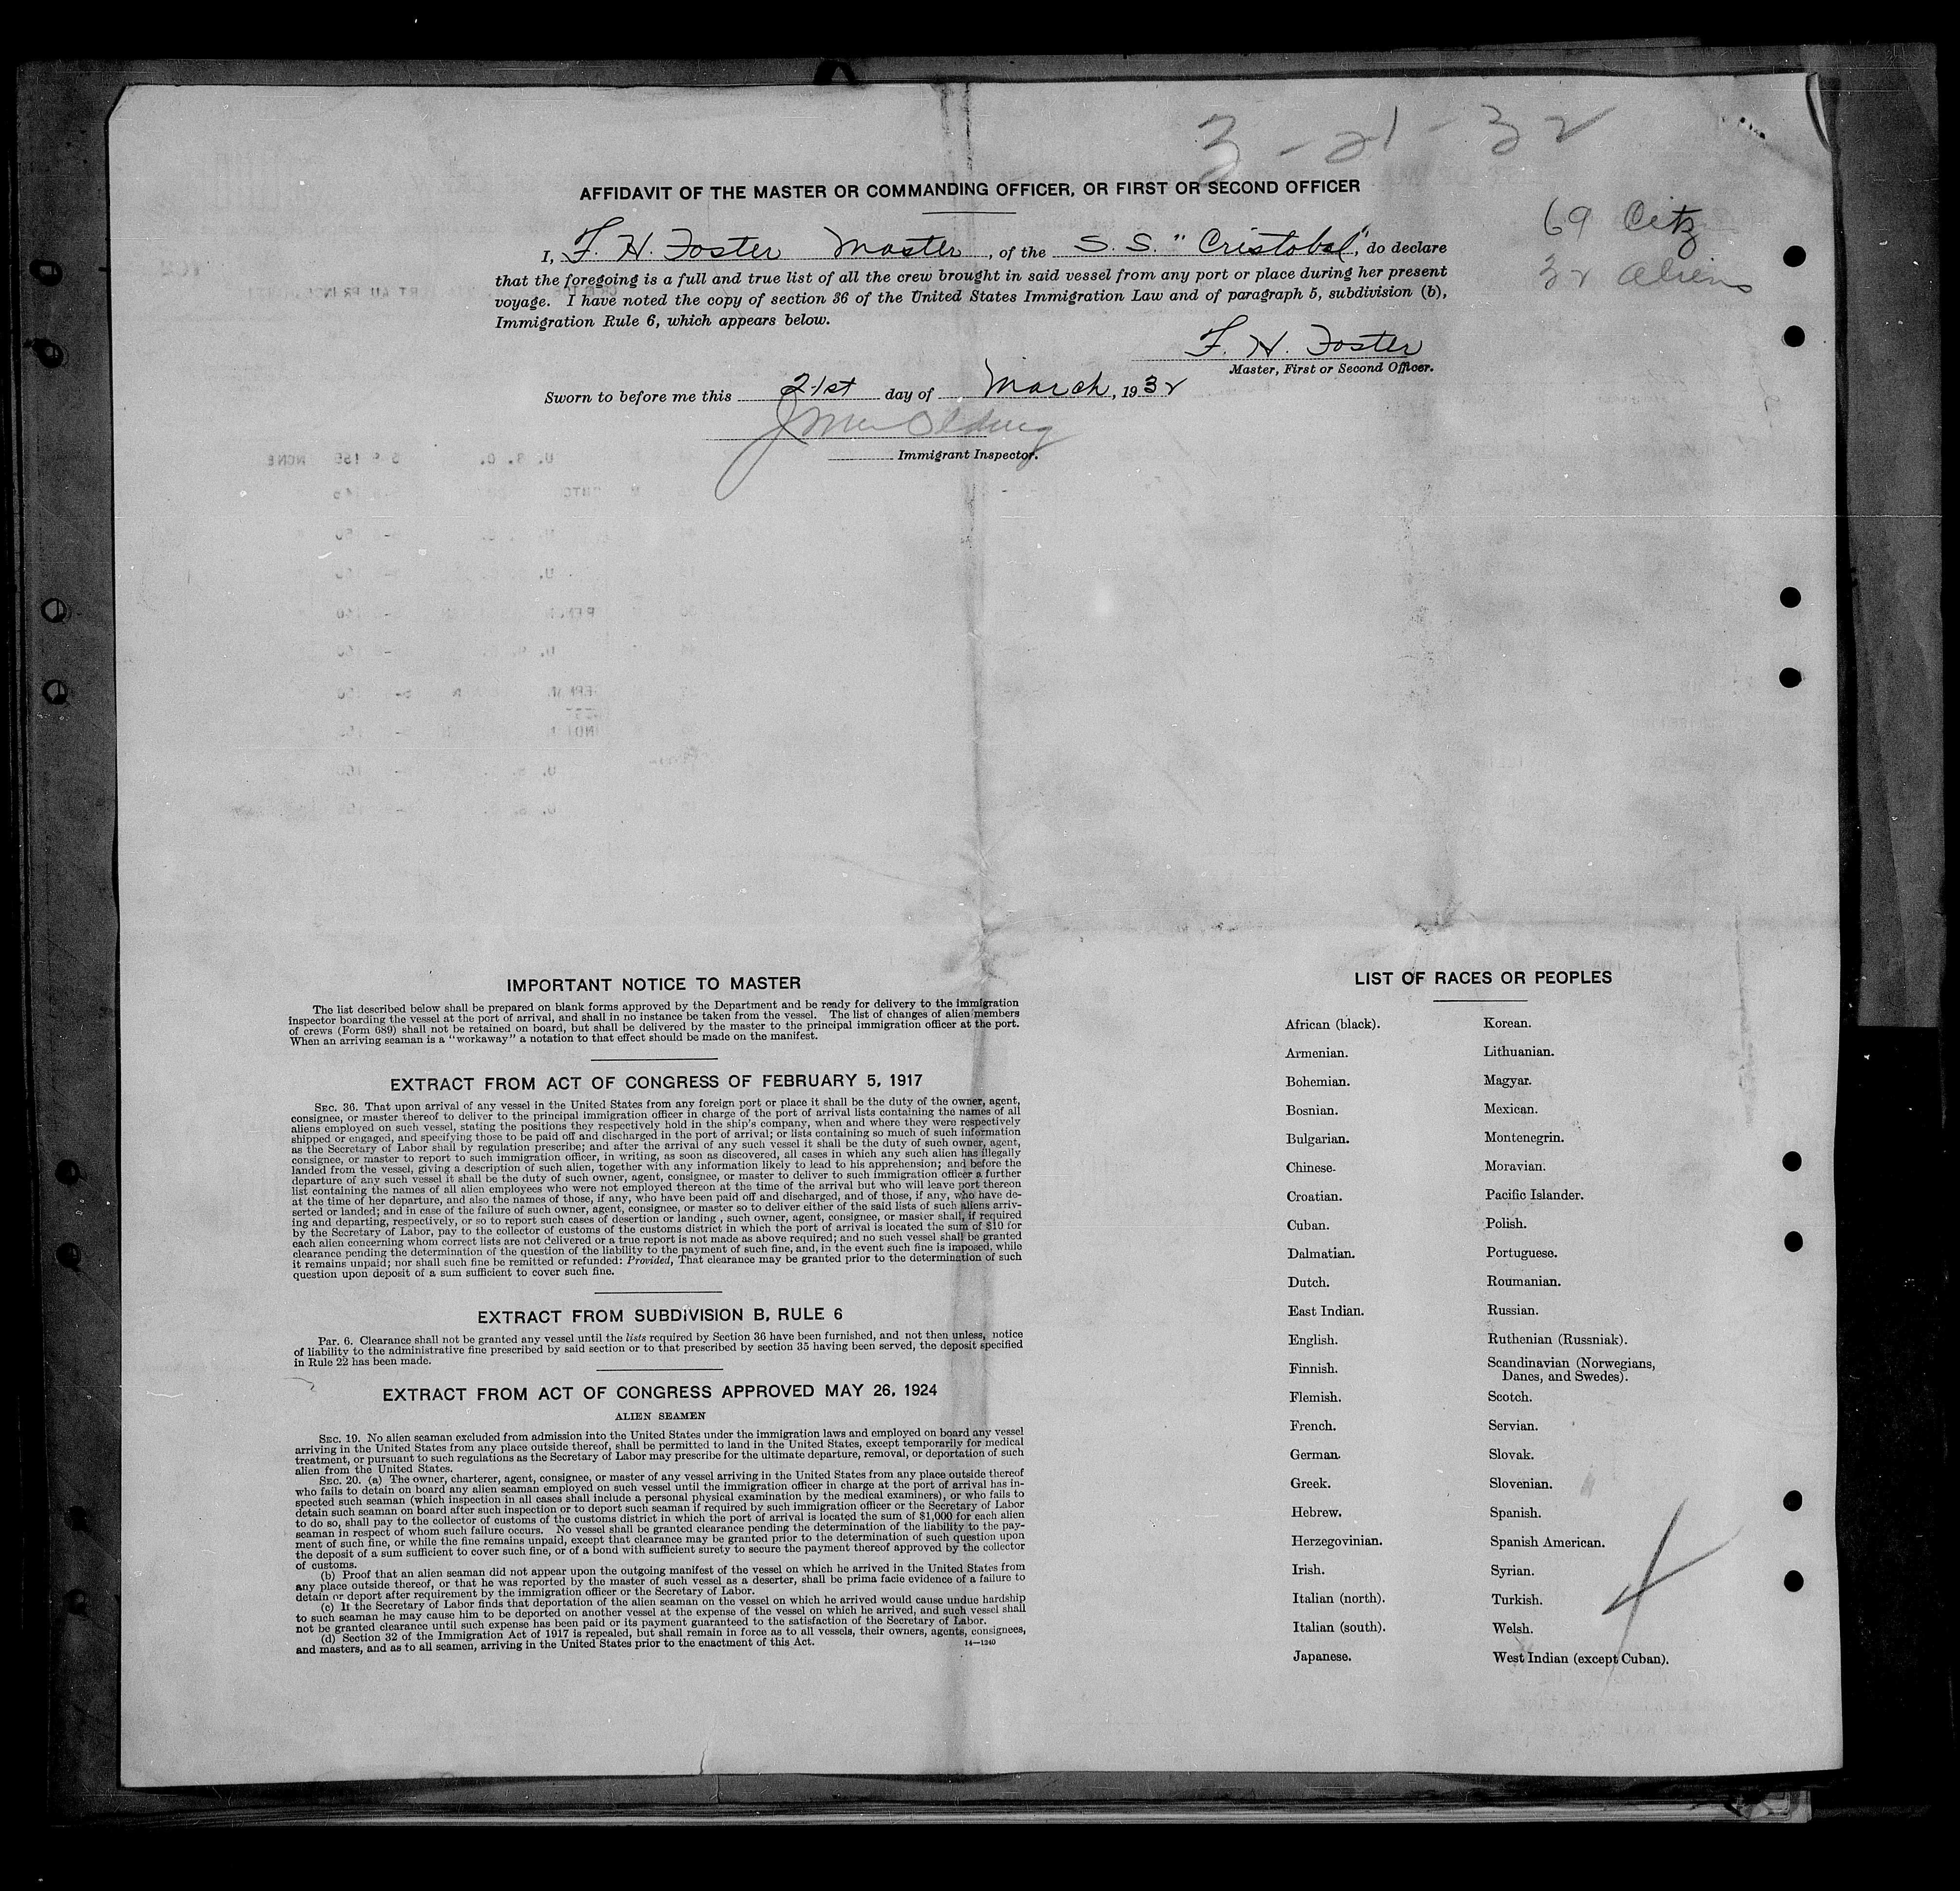 3-21-32
AFFIDAVIT OF THE MASTER OR COMMANDING OFFICER, OR FIRST OR SECOND OFFICER
69 Citz
32 Aliens
I, F. H. Foster Master, of the S. S. "Cristobal", do declare
that the foregoing is a full and true list of all the crew brought in said vessel from any port or place during her present
voyage. I have noted the copy of section 36 of the United States Immigration Law and of paragraph 5, subdivision (b),
Immigration Rule 6, which appears below.
F. H. Foster
Master, First or Second Officer.
Sworn to before me this 21st day of March, 1932
Immigrant Inspector.
IMPORTANT NOTICE TO MASTER
The list described below shall be prepared on blank forms approved by the Department and be ready for delivery to the immigration
inspector boarding the vessel at the port of arrival, and shall in no instance be taken from the vessel. The list of changes of alien members
of crews (Form 689) shall not be retained on board, but shall be delivered by the master to the principal immigration officer at the port.
When an arriving seaman is a "workaway" a notation to that effect should be made on the manifest.
EXTRACT FROM ACT OF CONGRESS OF FEBRUARY 5, 1917
SEC. 36. That upon arrival of any vessel in the United States from any foreign port or place it shall be the duty of the owner, agent,
consignee, or master thereof to deliver to the principal immigration officer in charge of the port of arrival lists containing the names of all
aliens employed on such vessel, stating the positions they respectively hold in the ship's company, when and where they were respectively
shipped or engaged, and specifying those to be paid off and discharged in the port of arrival; or lists containing so much of such information
as the Secretary of Labor shall by regulation prescribe; and after the arrival of any such vessel it shall be the duty of such owner, agent,
consignee, or master to report to such immigration officer, in writing, as soon as discovered, all cases in which any such alien has illegally
landed from the vessel, giving a description of such alien, together with any information likely to lead to his apprehension; and before the
departure of any such vessel it shall be the duty of such owner, agent, consignee, or master to deliver to such immigration officer a further
list containing the names of all alien employees who were not employed thereon at the time of the arrival but who will leave port thereon
at the time of her departure, and also the names of those, if any, who have been paid off and discharged, and of those, if any, who have de-
serted or landed; and in case of the failure of such owner, agent, consignee, or master so to deliver either of the said lists of such aliens arriv-
ing and departing, respectively, or so to report such cases of desertion or landing , such owner, agent, consignee, or master shall, if required
by the Secretary of Labor, pay to the collector of customs of the customs district in which the port of arrival is located the sum of $10 for
each alien concerning whom correct lists are not delivered or a true report is not made as above required; and no such vessel shall be granted
clearance pending the determination of the question of the liability to the payment of such fine, and, in the event such fine is imposed, while
it remains unpaid; nor shall such fine be remitted or refunded: Provided, That clearance may be granted prior to the determination of such
question upon deposit of a sum sufficient to cover such fine.
EXTRACT FROM SUBDIVISION B, RULE 6
Par. 6. Clearance shall not be granted any vessel until the lists required by Section 36 have been furnished, and not then unless, notice
of liability to the administrative fine prescribed by said section or to that prescribed by section 35 having been served, the deposit specified
in Rule 22 has been made.
EXTRACT FROM ACT OF CONGRESS APPROVED MAY 26, 1924
ALIEN SEAMEN
SEC. 19. No alien seaman excluded from admission into the United States under the immigration laws and employed on board any vessel
arriving in the United States from any place outside thereof, shall be permitted to land in the United States, except temporarily for medical
treatment, or pursuant to such regulations as the Secretary of Labor may prescribe for the ultimate departure, removal, or deportation of such
alien from the United States.
SEC. 20. (a) The owner, charterer, agent, consignee, or master of any vessel arriving in the United States from any place outside thereof
who fails to detain on board any alien seaman employed on such vessel until the immigration officer in charge at the port of arrival has in-
spected such seaman (which inspection in all cases shall include a personal physical examination by the medical examiners), or who fails to
detain such seaman on board after such inspection or to deport such seaman if required by such immigration officer or the Secretary of Labor
to do so, shall pay to the collector of customs of the customs district in which the port of arrival is located the sum of $1,000 for each alien
seaman in respect of whom such failure occurs. No vessel shall be granted clearance pending the determination of the liability to the pay-
ment of such fine, or while the fine remains unpaid, except that clearance may be granted prior to the determination of such question upon
the deposit of a sum sufficient to cover such fine, or of a bond with sufficient surety to secure the payment thereof approved by the collector
of customs.
(b) Proof that an alien seaman did not appear upon the outgoing manifest of the vessel on which he arrived in the United States from
any place outside thereof, or that he was reported by the master of such vessel as a deserter, shall be prima facie evidence of a failure to
detain or deport after requirement by the immigration officer or the Secretary of Labor.
(c) If the Secretary of Labor finds that deportation of the alien seaman on the vessel on which he arrived would cause undue hardship
to such seaman he may cause him to be deported on another vessel at the expense of the vessel on which he arrived, and such vessel shall
not be granted clearance until such expense has been paid or its payment guaranteed to the satisfaction of the Secretary of Labor.
(d) Section 32 of the Immigration Act of 1917 is repealed, but shall remain in force as to all vessels, their owners, agents, consignees,
and masters, and as to all seamen, arriving in the United States prior to the enactment of this Act.
14—1240
LIST OF RACES OR PEOPLES
African (black).
Armenian.
Bohemian.
Bosnian.
Bulgarian.
Chinese.
Croatian.
Cuban.
Dalmatian.
Dutch.
East Indian.
English.
Finnish.
Flemish.
French.
German.
Greek.
Hebrew.
Herzegovinian.
Irish.
Italian (north).
Italian (south).
Japanese.
Korean.
Lithuanian.
Magyar.
Mexican.
Montenegrin.
Moravian.
Pacific Islander.
Polish.
Portuguese.
Roumanian.
Russian.
Ruthenian (Russniak).
Scandinavian (Norwegians,
Danes, and Swedes).
Scotch.
Servian.
Slovak.
Slovenian.
Spanish.
Spanish American.
Syrian.
Turkish.
Welsh.
West Indian (except Cuban).